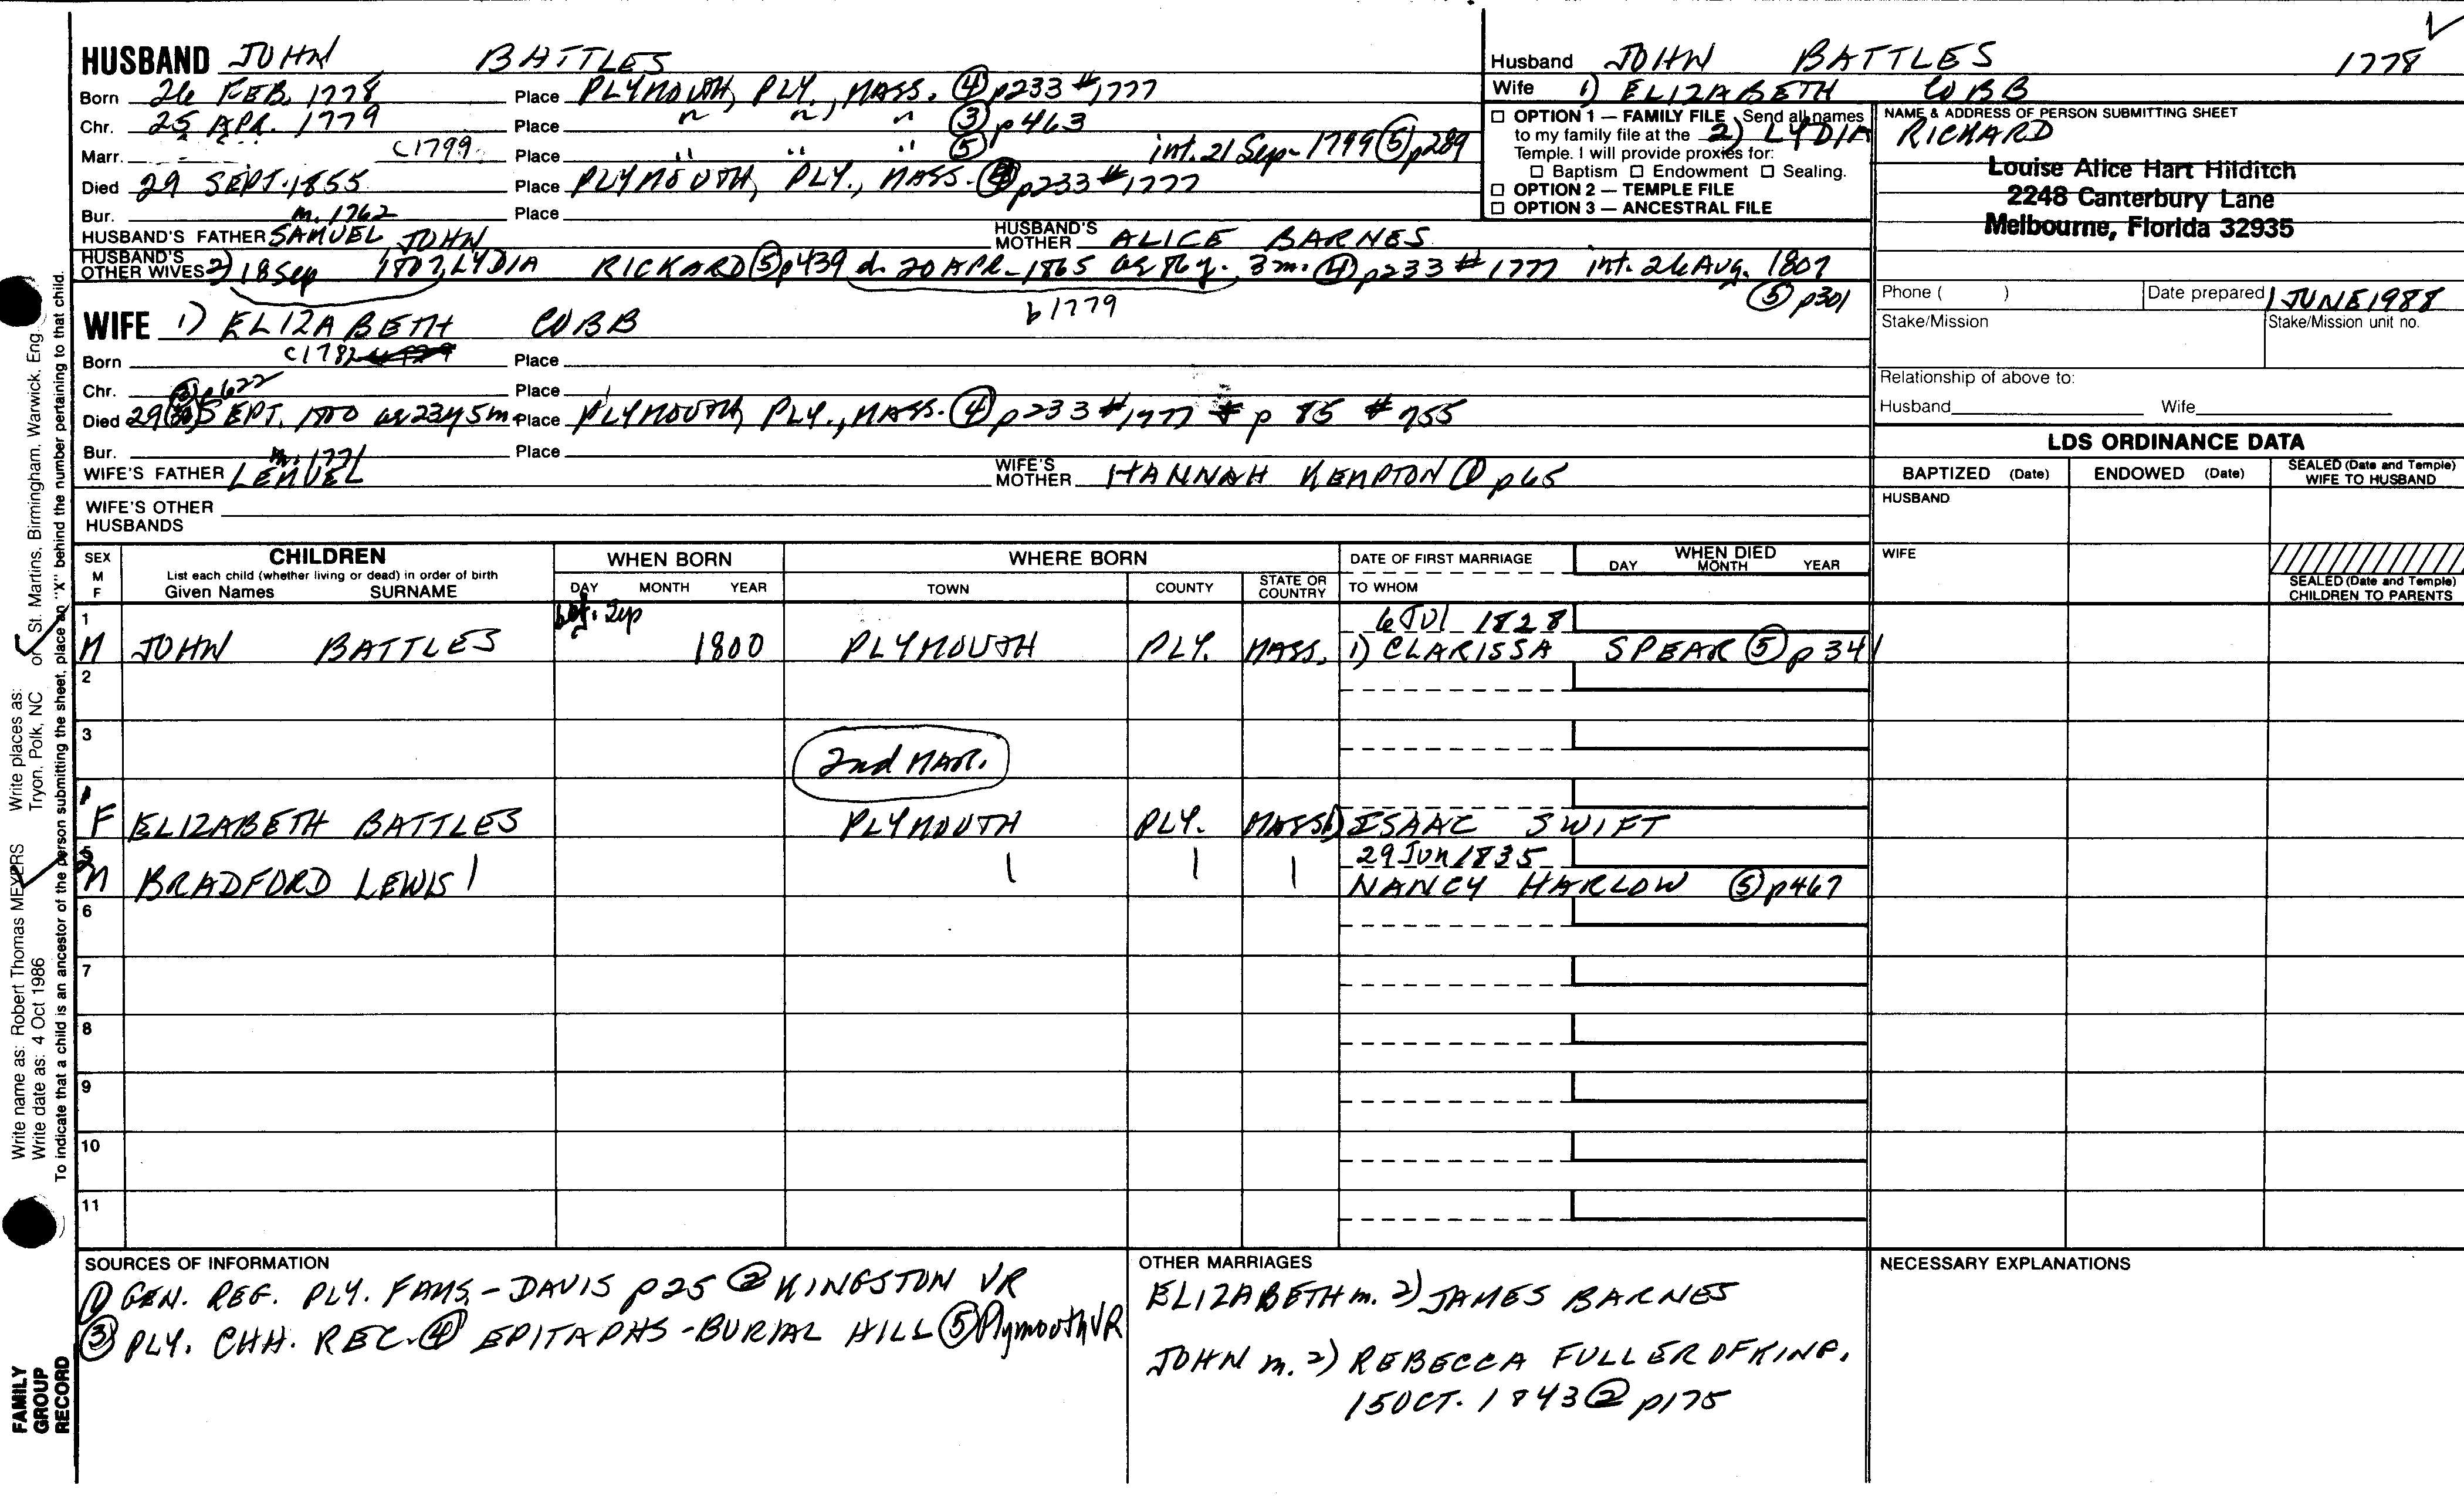 HUSBAND JOHN BATTLES
Born 26 FEB. 1778 Place PLYMOUTH, PLY., MASS. ④ p233 #1777
Chr. 25 APR. 1779 Place " " " ③ p463
Marr. C1799 Place " " " ⑤ int. 21 Sep - 1799 ⑤ p289
Died 29 SEPT. 1855 Place PLYMOUTH, PLY., MASS. ④ p233 #1777
Bur. Place
m. 1762
HUSBAND'S FATHER SAMUEL JOHN HUSBAND'S MOTHER ALICE BARNES
HUSBAND'S OTHER WIVES 2) 18 Sep 1807, LYDIA RICKARD ⑤ p439 d. 20 APR - 1865 ae 86 y. 3 m. ④ p233 #1777 int. 26 Aug. 1807
b 1779 ⑤ p301
WIFE 1) ELIZABETH COBB
Born C1782 Place
Chr. Place
③ p622
Died 29 (30) SEPT. 1800 ae 23 y 5 m Place PLYMOUTH, PLY., MASS. ④ p233 #1777 & p 85 #755
Bur. Place
m. 1771
WIFE'S FATHER LEMUEL WIFE'S MOTHER HANNAH KEMPTON ① p65
WIFE'S OTHER HUSBANDS
Husband JOHN BATTLES 1778
Wife 1) ELIZABETH COBB
2) LYDIA RICHARD
□ OPTION 1 — FAMILY FILE Send all names
to my family file at the
Temple. I will provide proxies for:
□ Baptism □ Endowment □ Sealing.
□ OPTION 2 — TEMPLE FILE
□ OPTION 3 — ANCESTRAL FILE
NAME & ADDRESS OF PERSON SUBMITTING SHEET
Louise Alice Hart Hilditch
2248 Canterbury Lane
Melbourne, Florida 32935
Phone ( ) Date prepared 1 JUNE 1988
Stake/Mission Stake/Mission unit no.
Relationship of above to:
Husband Wife
LDS ORDINANCE DATA
BAPTIZED (Date) ENDOWED (Date) SEALED (Date and Temple) WIFE TO HUSBAND
HUSBAND
WIFE
SEALED (Date and Temple) CHILDREN TO PARENTS
SEX M F CHILDREN WHEN BORN WHERE BORN DATE OF FIRST MARRIAGE WHEN DIED
List each child (whether living or dead) in order of birth
Given Names SURNAME DAY MONTH YEAR TOWN COUNTY STATE OR COUNTRY TO WHOM DAY MONTH YEAR
1 bef. Sep 6 Jul 1828
M JOHN BATTLES 1800 PLYMOUTH PLY. MASS. 1) CLARISSA SPEAR ⑤ p341
2
3
2nd MAR.
1
F ELIZABETH BATTLES PLYMOUTH PLY. MASS. 1) ISAAC SWIFT
5 29 Jun 1835
M BRADFORD LEWIS NANCY HARLOW ⑤ p467
6
7
8
9
10
11
SOURCES OF INFORMATION
① GEN. REG. PLY. FAMS. - DAVIS p25 ② KINGSTON VR
③ PLY. CHH. REC. ④ EPITAPHS - BURIAL HILL ⑤ Plymouth VR
OTHER MARRIAGES
ELIZABETH m. 2) JAMES BARNES
JOHN m. 2) REBECCA FULLER OF KING.
15 OCT. 1843 ② p175
NECESSARY EXPLANATIONS
Write name as: Robert Thomas MEYERS Write places as: Tryon, Polk, NC or St. Martins, Birmingham, Warwick, Eng
Write date as: 4 Oct 1986
To indicate that a child is an ancestor of the person submitting the sheet, place an "X" behind the number pertaining to that child.
FAMILY
GROUP
RECORD